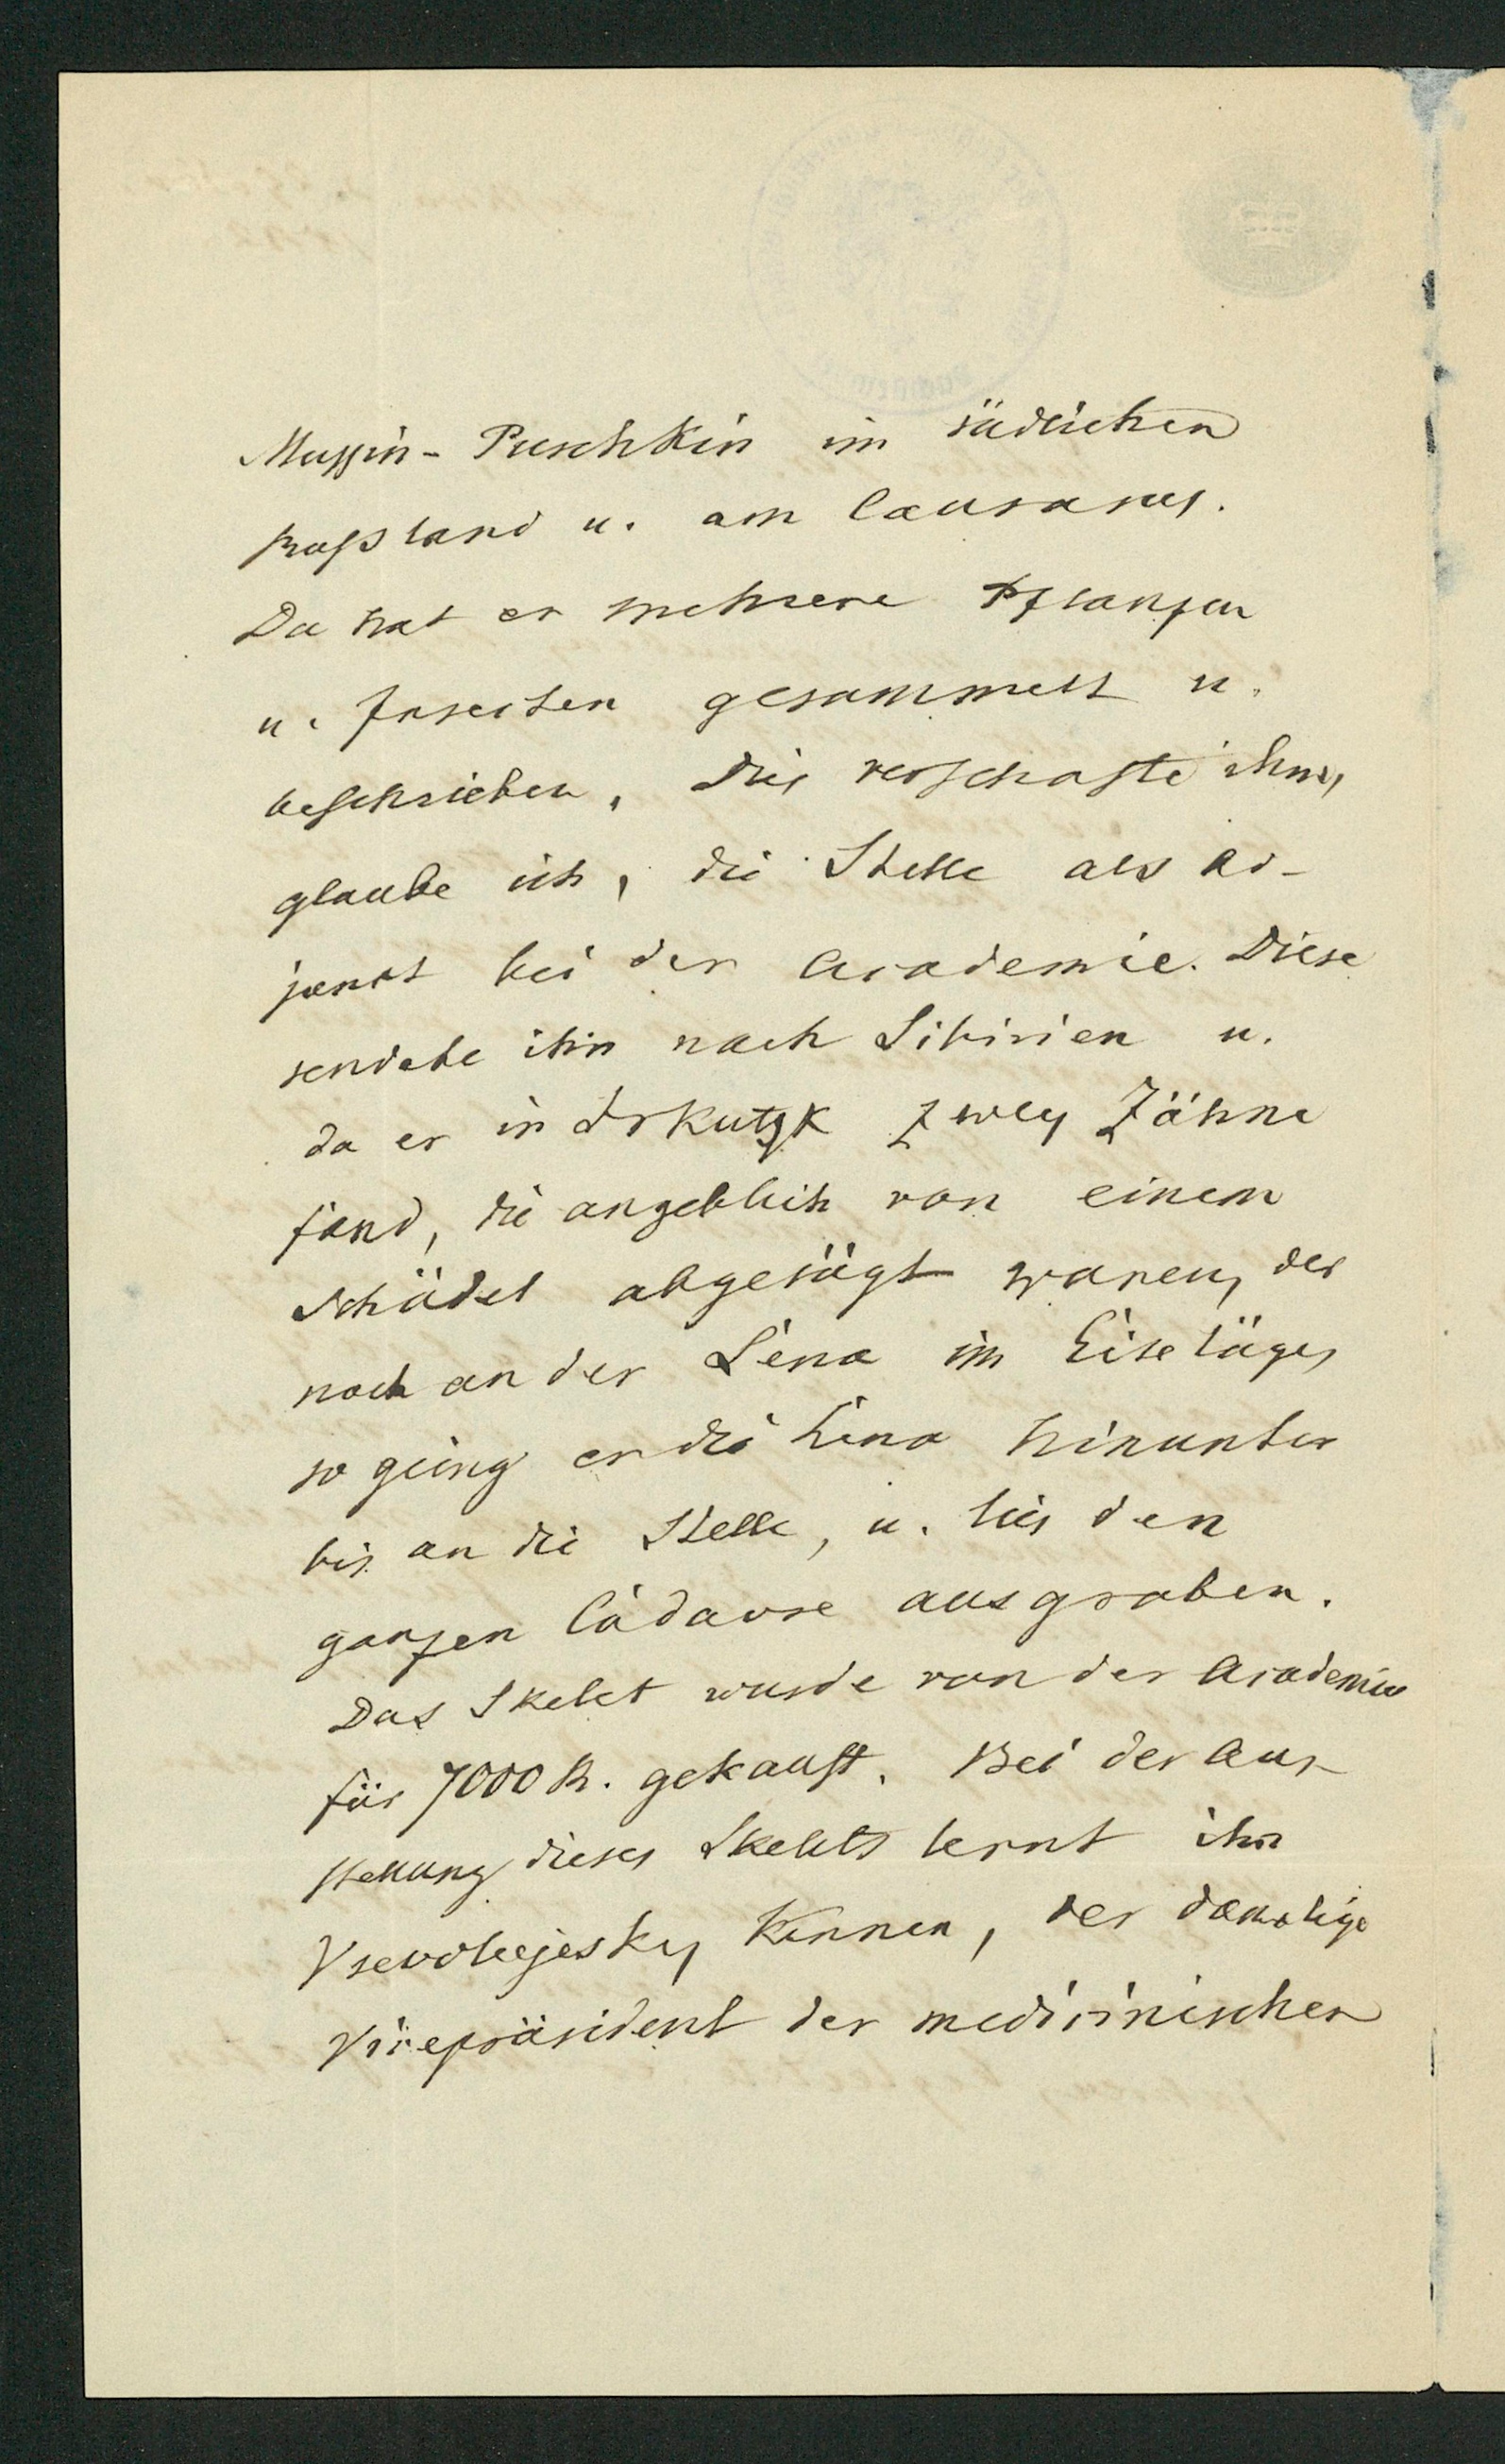 Mussin-Puschkin im südlichen
Russland u. am Caucasus.
Da hat er mehrere Pflanzen
u. Insecten gesammelt u.
beschrieben. Dies verschafte ihm,
glaube ich, die Stelle als Ad-
junct bei der Academie. Diese
sendete ihn nach Sibirien u.
da er in Irkutzk zwey Zähne
fand, die angeblich von einem
Schädel abgesägt waren, der
noch an der Lena im Eise läge,
so gieng er die Lena hinunter
bis an die Stelle, u. lies den
ganzen Cadavre ausgraben.
Das Skelet wurde von der Academie
für 7000 R. gekauft. Bei der Auf-
stellung dieses Skelets lernt ihn
Vsevolojesky kennen, der damalige
Vicepräsident der medicinischen